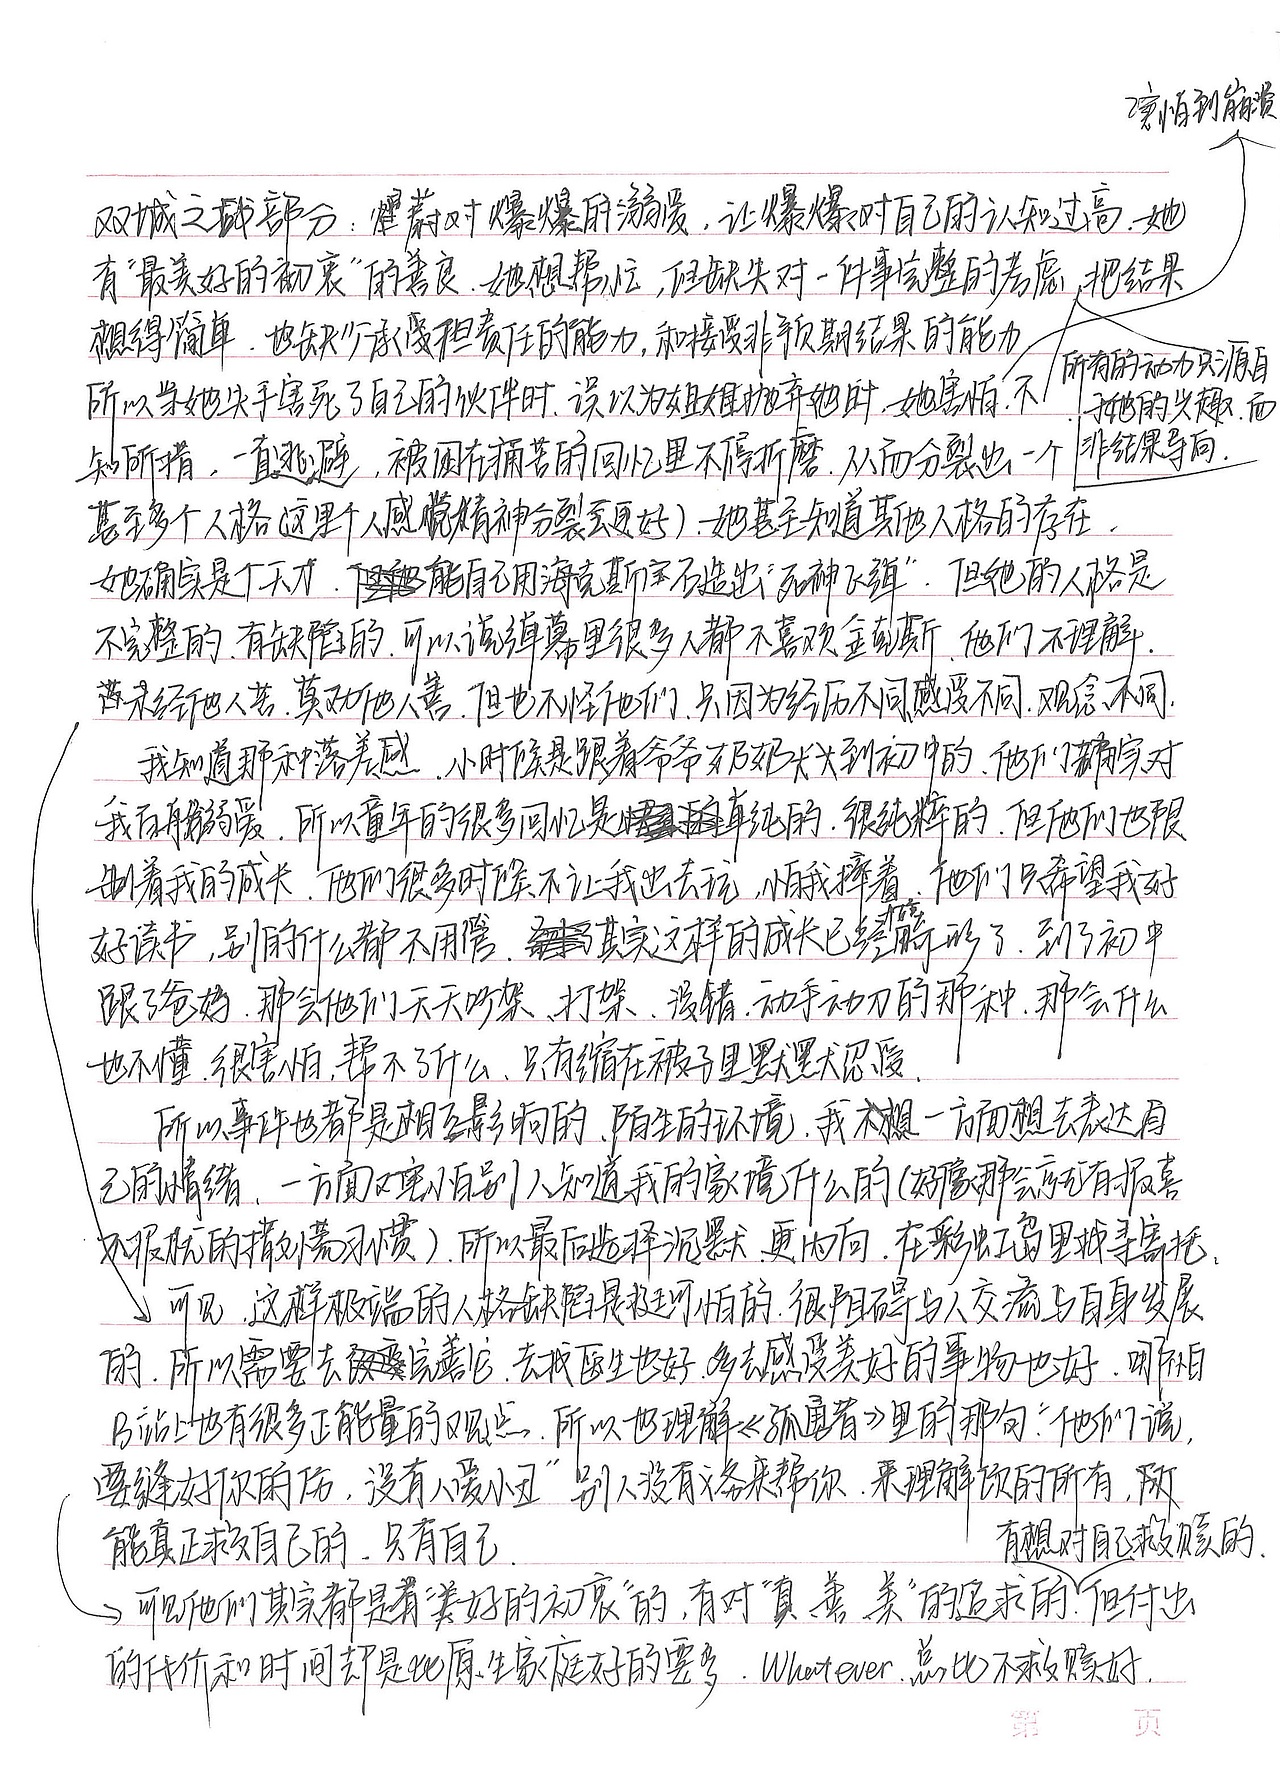 害怕到崩溃
双城之战部分：耀蔚对爆爆的溺爱，让爆爆对自己的认知过高.她
有“最美好的初衷”的善良.她想帮忙，但缺失对一件事完整的考虑，把结果
想得简单.也缺少承受担责任的能力，和接受非预期结果的能力
所有的动力只源自
于她的兴趣.而
非结果导向.
所以当她失手害死了自己的伙伴时.误以为姐姐抛弃她时.她害怕.不
知所措，一直逃避，被困在痛苦的回忆里不停折磨.从而分裂出一个
甚至多个人格(这里个人感觉精神分裂更好).她甚至知道其他人格的存在.
她确实是个天才.能自己用海克斯宝石造出“死神飞弹”.但她的人格是
不完整的.有缺陷的.可以说弹幕里很多人都不喜欢金克斯.他们不理解.
未经他人苦.莫劝他人善.但也不怪他们、只因为经历不同感受不同.观念不同.
我知道那种落差感.小时候是跟着爷爷奶奶长大到初中的.他们确实对
我有溺爱.所以童年的很多回忆是单纯的.很纯粹的.但他们也限
制着我的成长.他们很多时候不让我出去玩，怕我摔着.他们只希望我好
好读书，别的什么都不用管.其实这样的成长已经畸形了.到了初中
跟了爸妈.那会他们天天吵架、打架、没错.动手动刀的那种.那会什么
也不懂.很害怕.帮不了什么.只有缩在被子里默默忍受.
所以事件也都是相互影响的.陌生的环境.我一方面想去表达自
己的情绪.一方面又害怕别人知道我的家境什么的(好像那会就有报喜
不报忧的撒谎习惯).所以最后选择沉默.更内向.在彩虹岛里找寻寄托.
可见.这样极端的人格缺陷是挺可怕的.很阻碍与人交流与自身发展
的.所以需要去完善它.去找医生也好.多去感受美好的事物也好.哪怕
B站上也有很多正能量的观点.所以也理解《孤勇者》里的那句:“他们说，
要缝好你的伤，没有人爱小丑”别人没有义务来帮你.来理解你的所有，所
能真正救自己的.只有自己.
有想对自己救赎的.
可见他们其实都是有“美好的初衷”的，有对“真、善、美”的追求的.但付出
的代价和时间却是比原生家庭好的要多.Whatever.总比不救赎好.
第 页